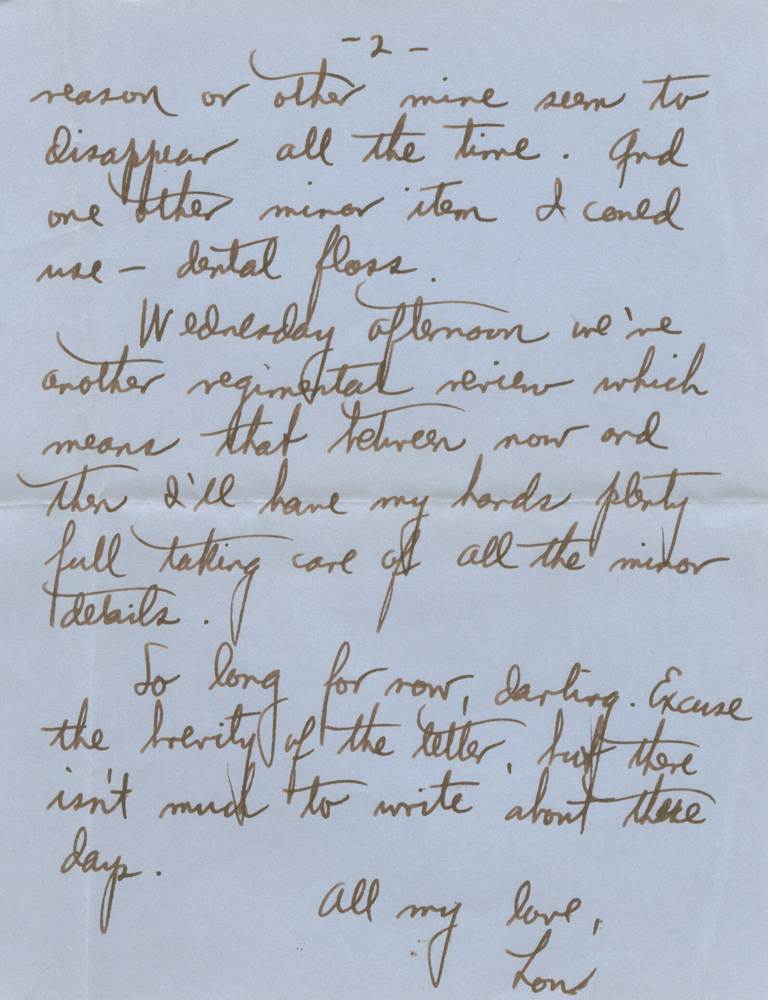 - 2 -
reason or other mine seem to
disappear all the time. And
one other minor item I could
use - dental floss.
Wednesday afternoon we've
another regimental review which
means that between now and
then I'll have my hands plenty
full taking care of all the minor
details.
So long for now, darling. Excuse
the brevity of the letter, but there
isn't much to write about these
days.
All my love,
Lon